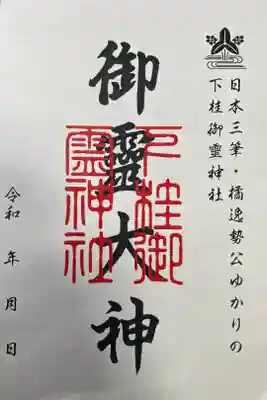 日本三筆・橘逸勢公ゆかりの
下桂御霊神社
御靈大神
下桂御
靈神社
令和　年　月　日